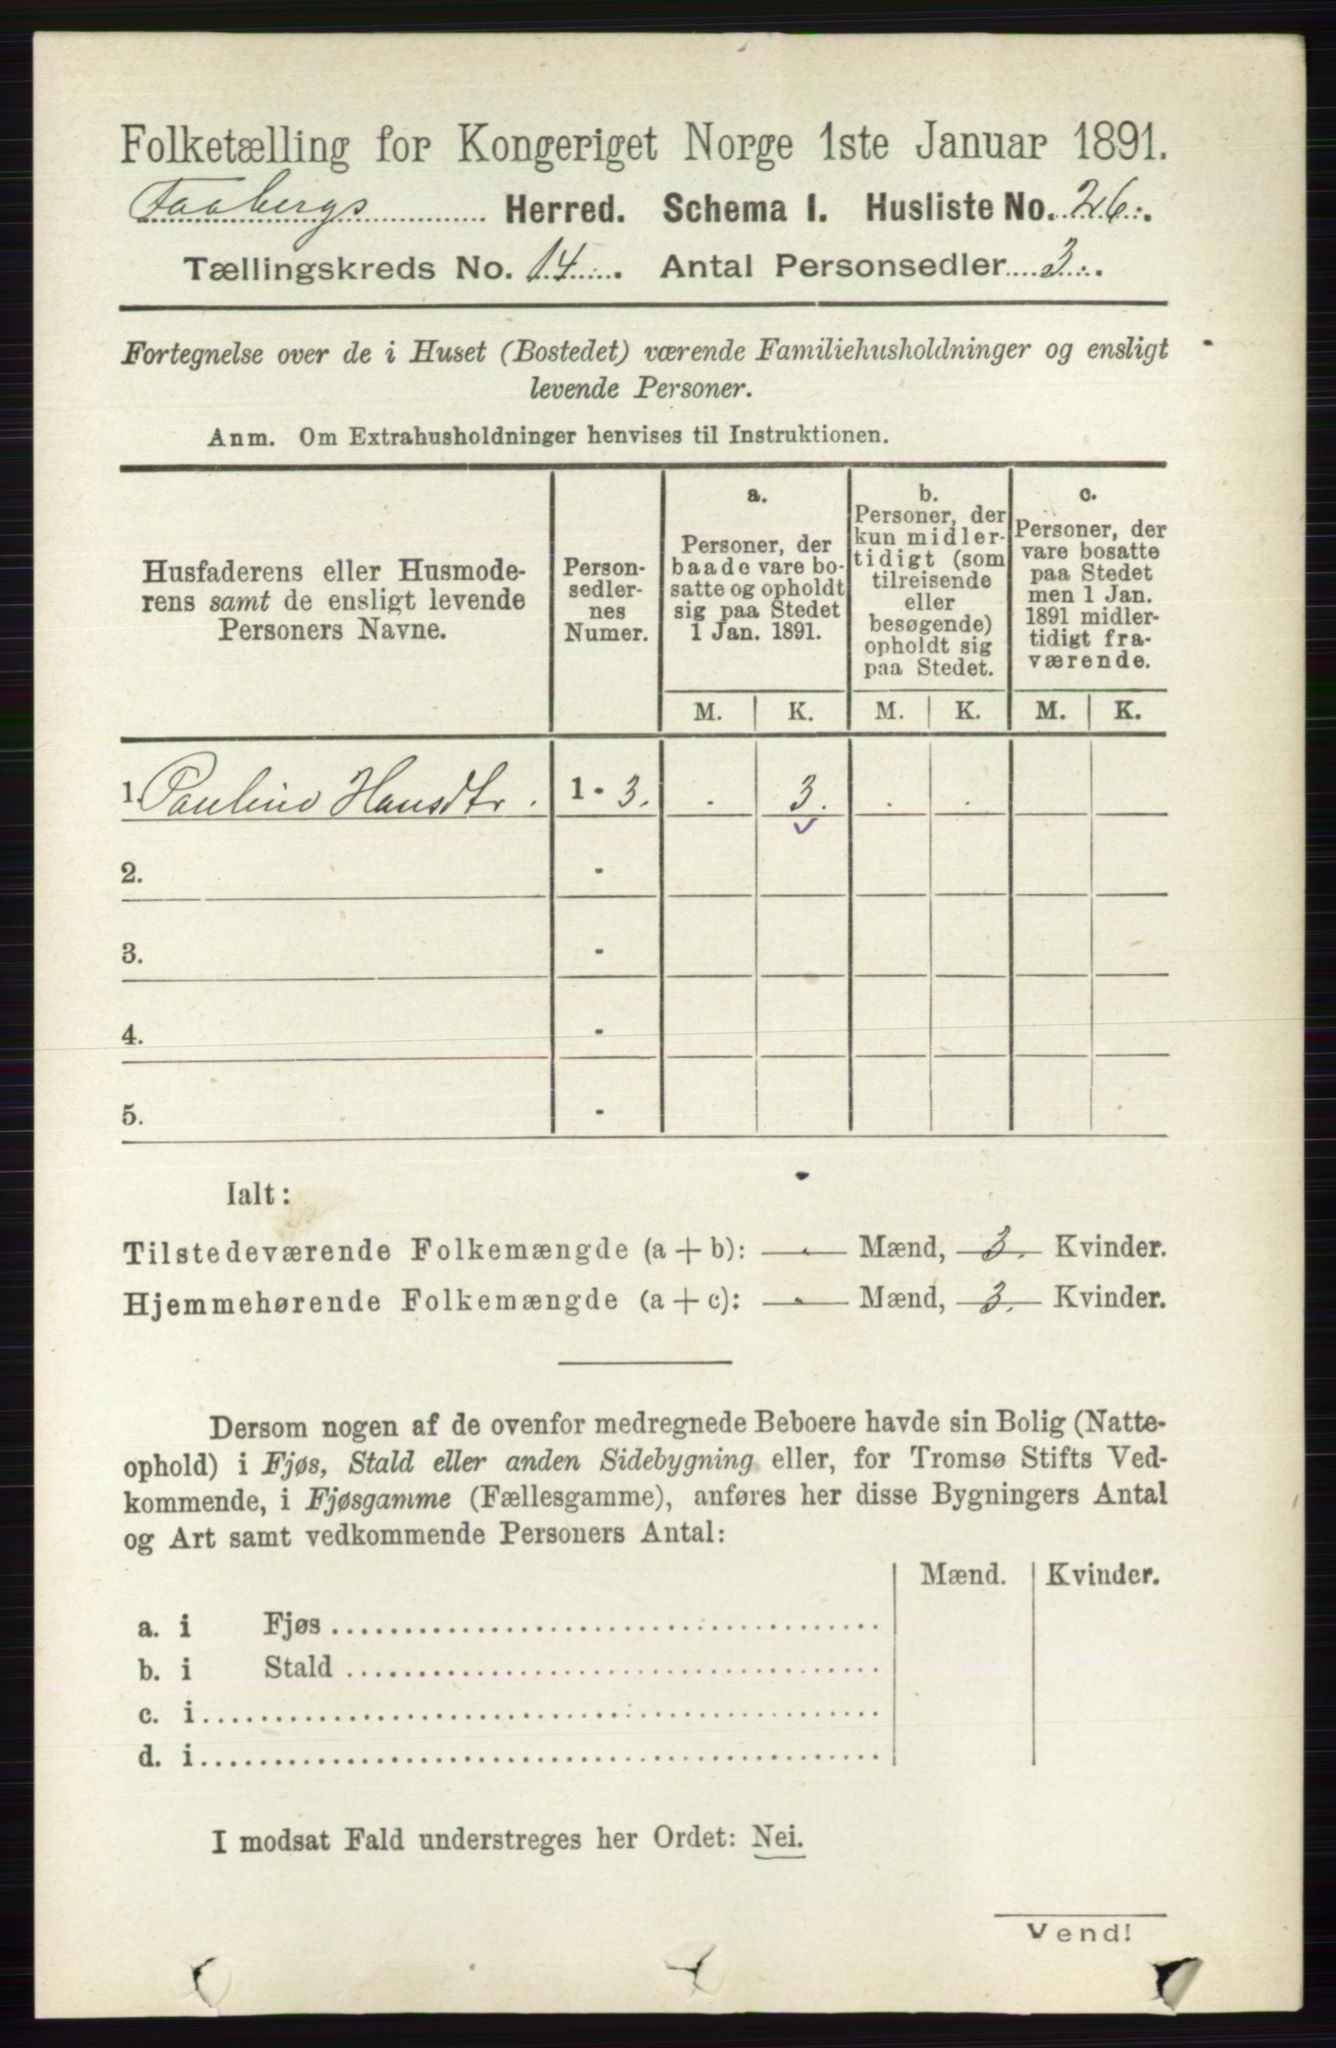 Folketælling for Kongeriget Norge 1ste Januar 1891.
Faabergs Herred. Schema I. Husliste No. 26.
Tællingskreds No. 14. Antal Personsedler 3.
Fortegnelse over de i Huset (Bostedet) værende Familiehusholdninger og ensligt
levende Personer.
Anm. Om Extrahusholdninger henvises til Instruktionen.
Husfaderens eller Husmode-
rens samt de ensligt levende
Personers Navne.
Person-
sedler-
nes
Numer.
a.
Personer, der
baade vare bo-
satte og opholdt
sig paa Stedet
1 Jan. 1891.
b.
Personer, der
kun midler-
tidigt (som
tilreisende
eller
besøgende)
opholdt sig
paa Stedet.
c.
Personer, der
vare bosatte
paa Stedet
men 1 Jan.
1891 midler-
tidigt fra-
værende.
M. K. M. K. M. K.
1. Pauline Hansdtr. 1 - 3. . 3. . .
2. -
3. -
4. -
5. -
Ialt:
Tilstedeværende Folkemængde (a + b): — Mænd, 3. Kvinder.
Hjemmehørende Folkemængde (a + c): — Mænd, 3. Kvinder.
Dersom nogen af de ovenfor medregnede Beboere havde sin Bolig (Natte-
ophold) i Fjøs, Stald eller anden Sidebygning eller, for Tromsø Stifts Ved-
kommende, i Fjøsgamme (Fællesgamme), anføres her disse Bygningers Antal
og Art samt vedkommende Personers Antal:
Mænd. Kvinder.
a. i Fjøs
b. i Stald
c. i
d. i
I modsat Fald understreges her Ordet: Nei.
Vend!